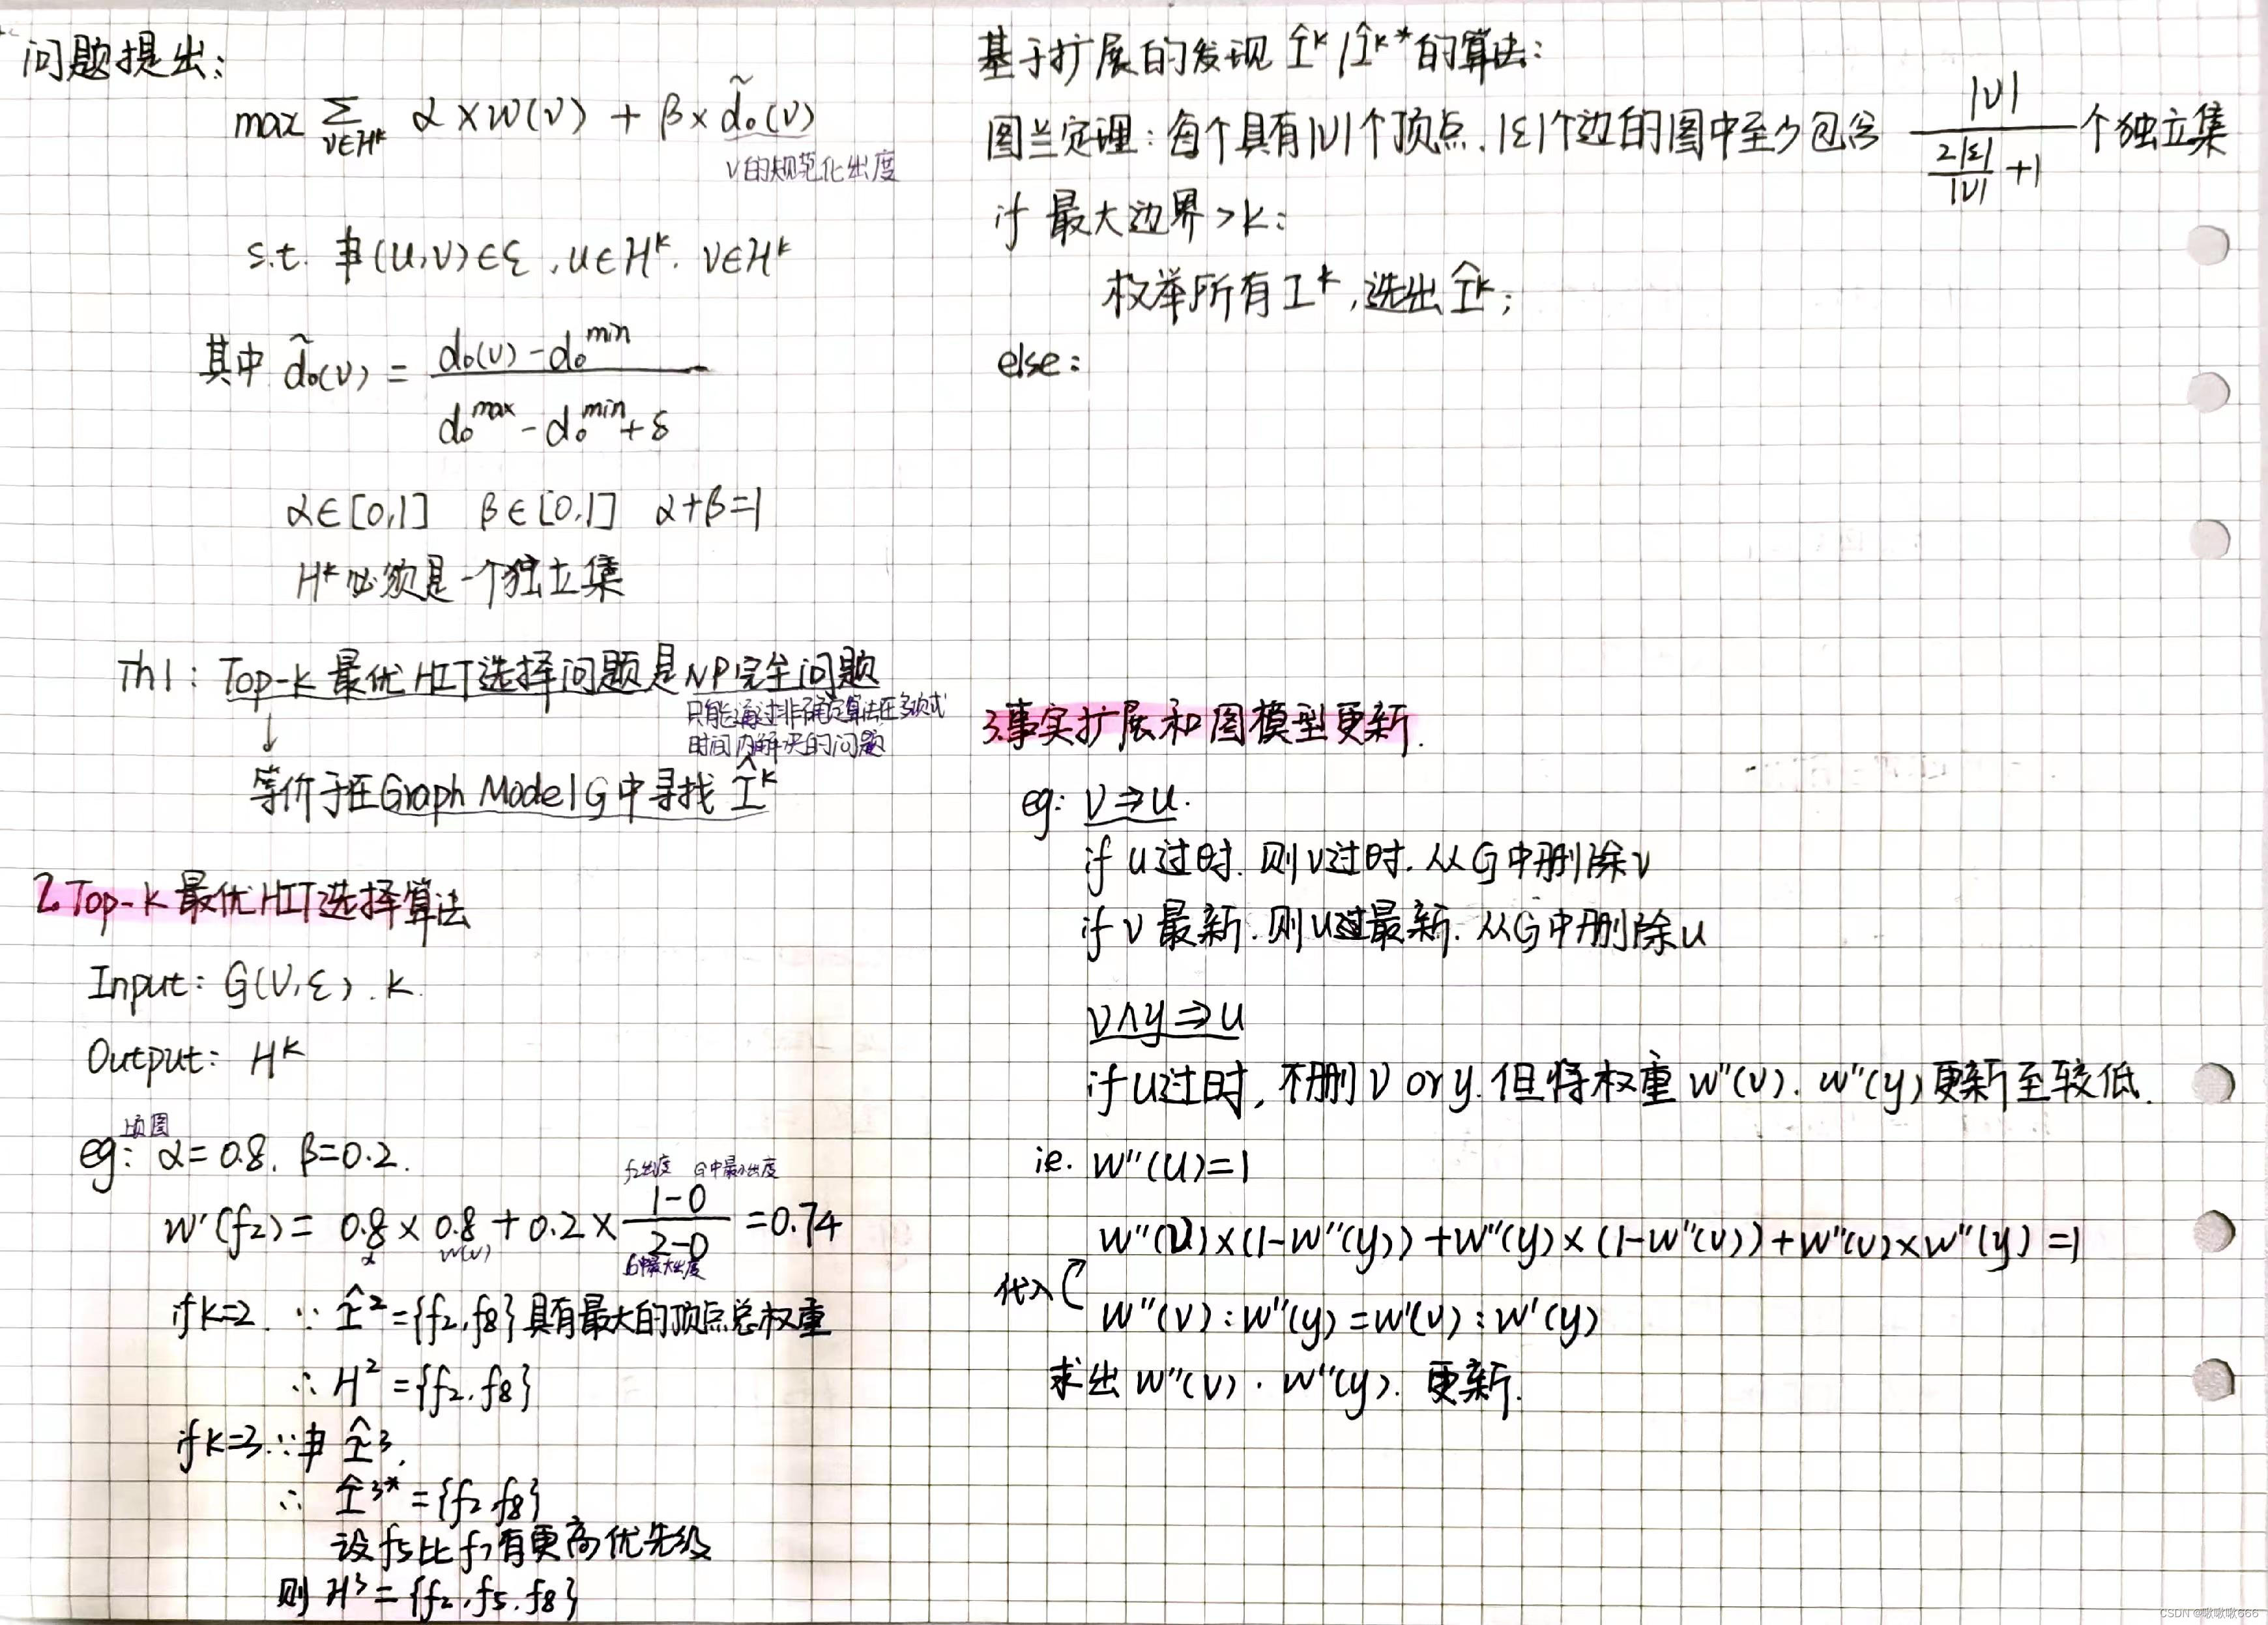 问题提出:
max ∑ α×w(v) + β×d̃ₒ(v)
v∈Hᵏ
v的规范化出度
s.t. ∄(u,v)∈ε, u∈Hᵏ, v∈Hᵏ
其中 d̃ₒ(v) = (dₒ(v) - dₒᵐⁱⁿ) / (dₒᵐᵃˣ - dₒᵐⁱⁿ + δ)
α∈[0,1] β∈[0,1] α+β=1
Hᵏ必须是一个独立集
Th1: Top-k 最优HIT选择问题是NP完全问题
只能通过非确定算法在多项式
时间内解决的问题
↓
等价于在Graph Model G中寻找 Îᵏ
2. Top-k 最优HIT选择算法
Input: G(V,ε). k.
Output: Hᵏ
eg: α=0.8. β=0.2.
f₂出度 G中最小出度
w'(f₂) = 0.8 × 0.8 + 0.2 × (1-0)/(2-0) = 0.74
α w(v) G中最大出度
if k=2. ∵ Î² = {f₂,f₈} 具有最大的顶点总权重
∴ H² = {f₂,f₈}
if k=3. ∵ ∄ Î³.
∴ Î³* = {f₂,f₈}
设f₅比f₇有更高优先级
则 H³ = {f₂,f₅,f₈}
基于扩展的发现 Îᵏ/Îᵏ*的算法:
图兰定理: 每个具有|V|个顶点.|ε|个边的图中至少包含 |V| / (2|ε|/|V| + 1) 个独立集
if 最大边界>k:
枚举所有Iᵏ,选出Îᵏ;
else:
3.事实扩展和图模型更新.
eg: v⇒u.
if u过时. 则v过时. 从G中删除v
if v最新. 则u过最新. 从G中删除u
v∧y⇒u
if u过时, 不删v or y. 但将权重 w''(v). w''(y) 更新至较低.
ie. w''(u)=1
w''(v)×(1-w''(y))+w''(y)×(1-w''(v))+w''(v)×w''(y)=1
代入
w''(v):w''(y)=w'(v):w'(y)
求出 w''(v). w''(y). 更新.
CSDN @啾啾啾666